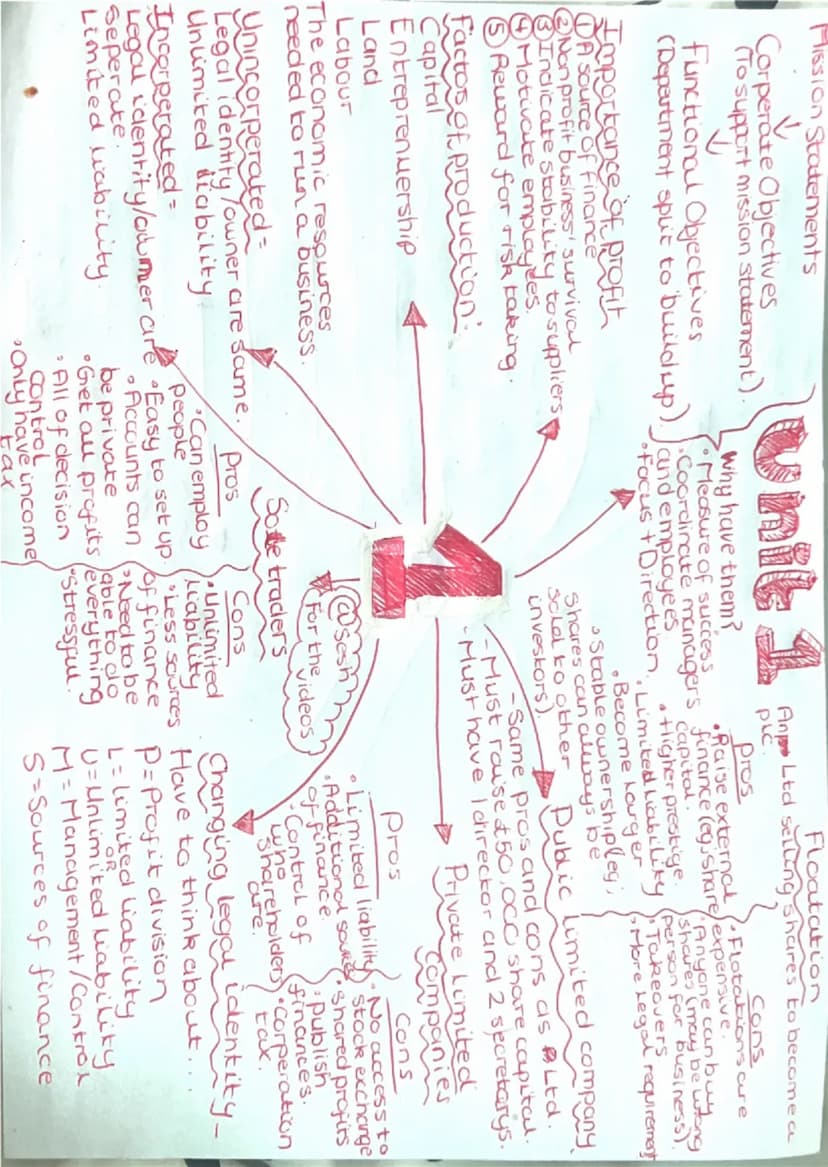 Unit 1
Mission Statements
Corperate Objectives
(To support mission statement)
Functional Objectives
(Department split to build up)
Why have them?
• Measure of success
• Coordinate managers
and employees
• Focus + Direction
Importance of profit
① A source of finance
② Non profit business' survival
③ Indicate stability to suppliers
④ Motivate employees.
⑤ Reward for risk taking.
Factors of production:
Capital
Entreprenuership
Land
Labour
The economic resources
needed to run a business.
Unincorperated =
Legal identity/owner are same.
Unlimited liability
Incorperated =
Legal identity/owner are
seperate.
Limited liability.
Floatation
Ltd selling shares to become a
plc.
Pros
• Raise external
finance (eg, share
capital.
• Higher prestige.
• Limited liability
• Become larger
• Stable ownership (eg;
shares can always be
sold to other
investors).
Cons
• Flotations are
expensive.
• Anyone can buy
shares (may be wrong
person for business).
• Takeovers
• More legal requirement
Public limited company
- Same pros and cons as Ltd.
- Must raise £50,000 share capital.
- Must have 1 director and 2 secretarys.
Private Limited
Companies
Pros
• Limited liability
• Additional sources
of finance.
• Control of
who
shareholders
are.
Cons
• No access to
stock exchange
• Shared profits
• Publish
finances.
• Corperation
tax.
@sesh
for the videos
Sole traders
Pros
• Can employ
people
• Easy to set up.
• Accounts can
be private
• Get all profits
• All of decision
control
• Only have income
tax
Cons
• Unlimited
liability
• Less sources
of finance
• Need to be
able to do
everything
• Stressful.
Changing legal identity -
Have to think about....
P = Profit division
L = Limited liability
OR
U = Unlimited liability
M = Management/Control
S = Sources of finance